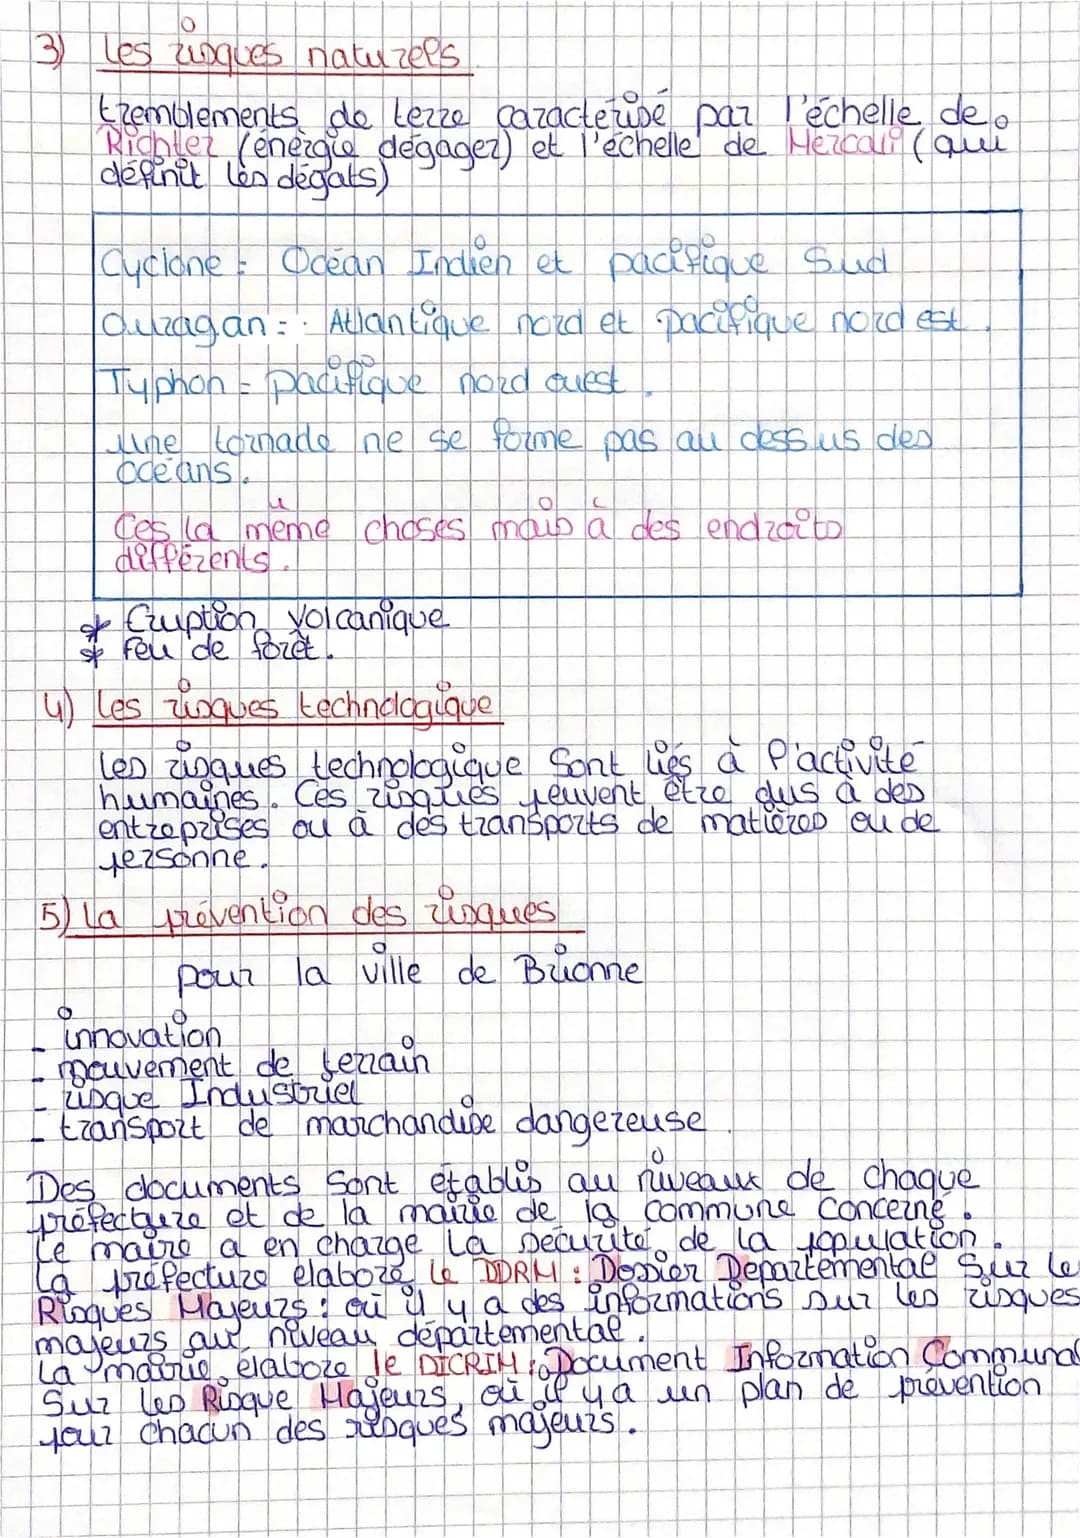 3) Les risques naturels
tremblements de terre caractérisé par l'échelle de
Richter (énergie dégager) et l'échelle de Mercali (qui
définit les dégats)
Cyclone = Océan Indien et pacifique Sud
Ouragan = : Atlantique nord et pacifique nord est.
Typhon = pacifique nord ouest.
une tornade ne se forme pas au dessus des
océans.
Ces la même choses mais à des endroits
différents.
* Éruption volcanique
* Feu de forêt.
4) Les risques technologique
Les risques technologique sont liés à l'activité
humaines. Ces risques peuvent être dus à des
entreprises ou à des transports de matières ou de
personne.
5) La prévention des risques
pour la ville de Brionne
- innovation
- mouvement de terrain
- risque Industriel
- transport de marchandise dangereuse.
Des documents sont établis au niveaux de chaque
préfecture et de la mairie de la commune concerné.
Le maire a en charge la sécurité de la population.
La préfecture élabore le DDRM : Dossier Départemental Sur les
Risques Majeurs : où il y a des informations sur les risques
majeurs au niveau départemental.
La mairie élabore le DICRIM : Document Information Communal
Sur les Risque Majeurs, où il y a un plan de prévention
pour chacun des risques majeurs.